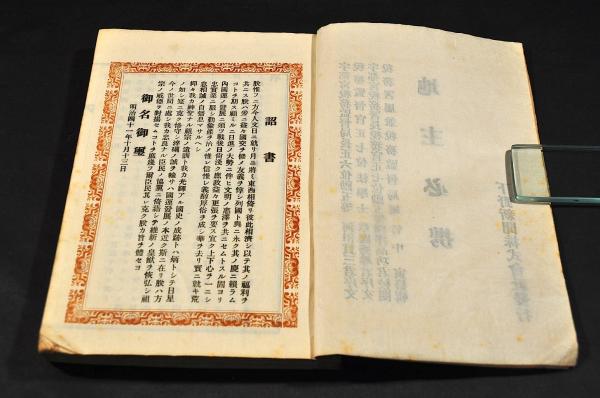 詔書
朕惟フニ方今人文日ニ就リ月ニ將ミ東西相倚リ彼此相濟シ以テ其ノ福利ヲ
共ニス朕ハ爰ニ益々國交ヲ修メ友義ヲ惇シ列國ト與ニ永ク其ノ慶ニ賴ラム
コトヲ期ス顧ミルニ日進ノ大勢ニ伴ヒ文明ノ惠澤ヲ共ニセムトスル固ヨリ
内國運ノ發展ニ須ツ戰後日尚淺ク庶政益々更張ヲ要ス宜ク上下心ヲ一ニシ
忠實業ニ服シ勤儉產ヲ治メ惟レ信惟レ義醇厚俗ヲ成シ華ヲ去リ實ニ就キ荒
怠相誡メ自彊息マサルヘシ
抑々我カ神聖ナル祖宗ノ遺訓ト我カ光輝アル國史ノ成跡トハ炳トシテ日星
ノ如シ寔ニ克ク恪守シ淬礪ノ誠ヲ輸サハ國運發展ノ本近ク斯ニ在リ朕ハ方
今ノ世局ニ處シ我カ忠良ナル臣民ノ協翼ニ倚藉シテ維新ノ皇猷ヲ恢弘シ祖
宗ノ威德ヲ對揚セムコトヲ庶幾フ爾臣民其レ克ク朕カ旨ヲ體セヨ
御名御璽
明治四十一年十月十三日
地主必携
下野新聞株式會社發行